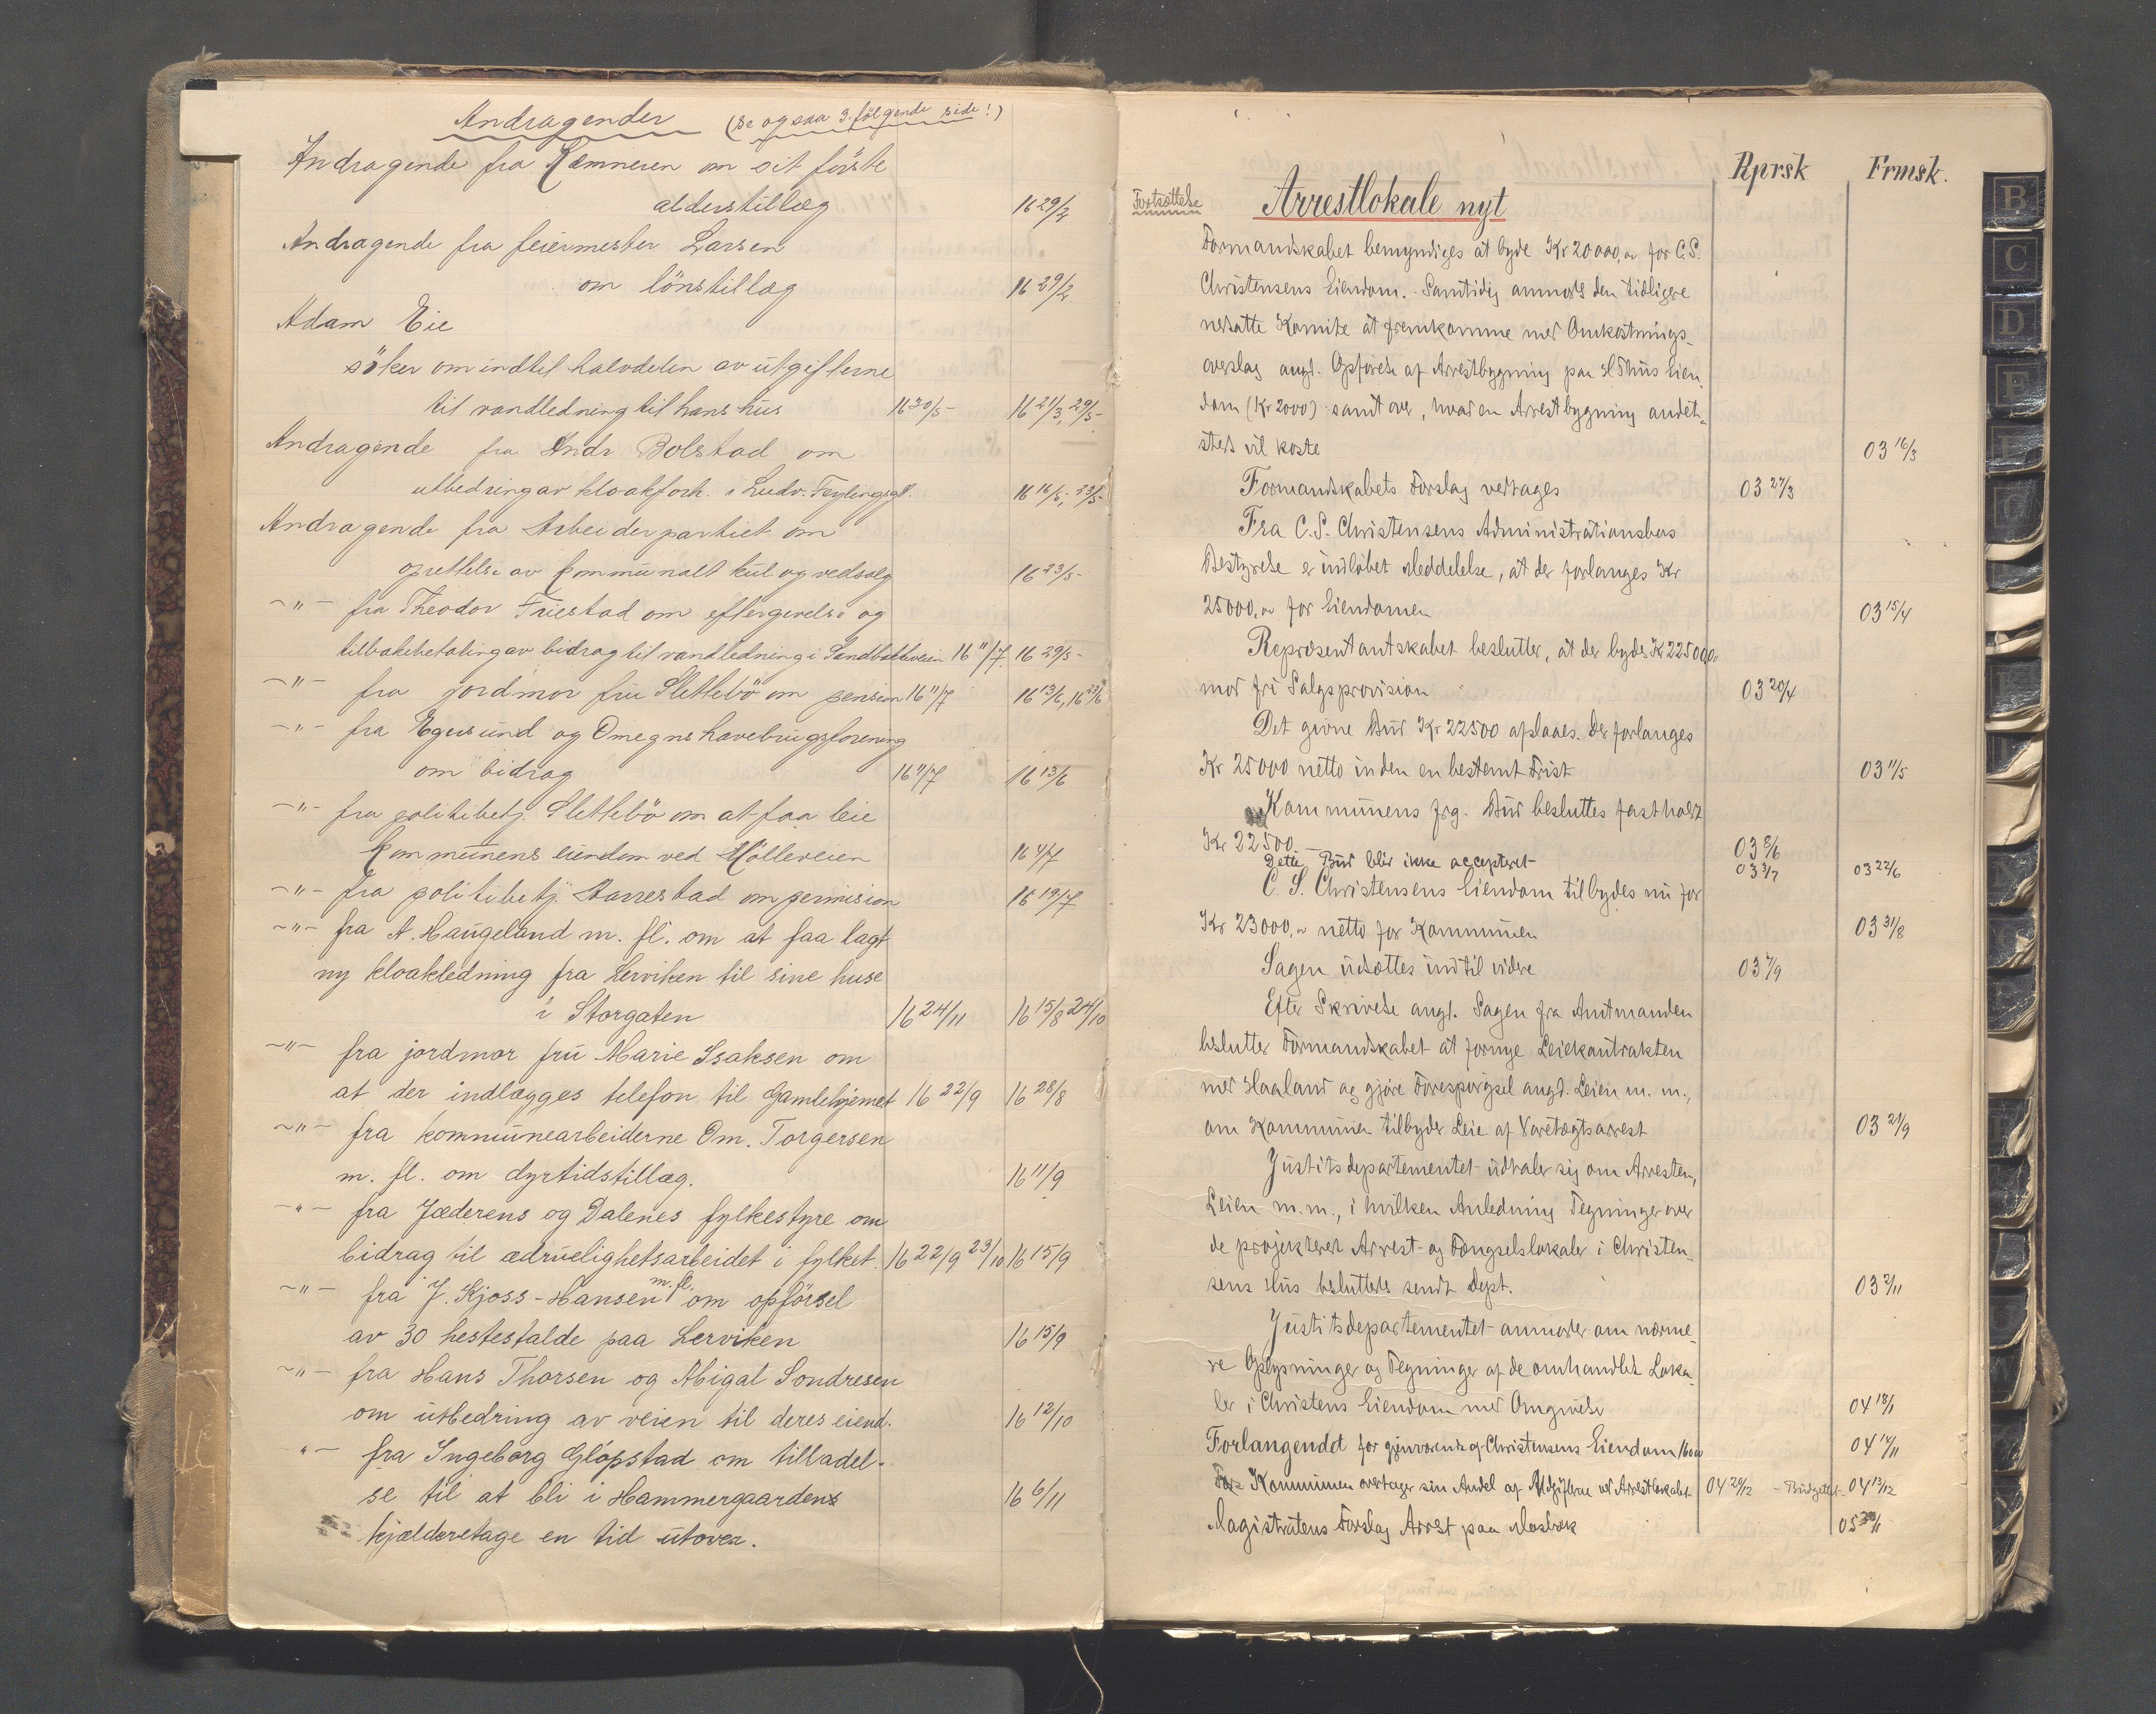 Andragender (Se ogsaa 3. følgende side!)
Andragende fra Kæmneren om sit første
alderstillæg 16 29/2
Andragende fra feiermester Larsen
om lönstillæg 16 29/2
Adam Eie
söker om indtil halvdelen av utgifterne
til vandledning til hans hus 16 30/5- 16 21/3, 29/5-
Andragende fra Andr. Bolstad om
utbedring av kloakforh. i Ludv. Feylingsgt. 16 16/5, 23/5-
Andragende fra Arbeiderpartiet om
oprettelse av kommunalt kul og vedsalg 16 23/5-
-"- fra Theodor Friestad om eftergivelse og
tilbakebetaling av bidrag til vandledning i Sandbakkveien 16 11/7 16 29/5-
-"- fra jordmor fru Slettebö om pension 16 11/7 16 13/6, 16 23/6
-"- fra Egersund og Omegns havebrugsforening
om bidrag 16 11/7 16 13/6
-"- fra politibetj. Slettebö om at faa leie
kommunens eiendom ved Mölleveien 16 4/7
-"- fra politibetj. Aarrestad om permision 16 19/7
-"- fra A. Haugeland m. fl. om at faa lagt
ny kloakledning fra Lerviken til sine huse
i Storgaten 16 24/11 16 15/8 24/10
-"- fra jordmor fru Marie Isaksen om
at der indlægges telefon til Gamlehjemmet 16 22/9 16 28/8
-"- fra kommunearbeiderne Om. Torgersen
m. fl. om dyrtidstillæg. 16 11/9
-"- fra Jæderens og Dalenes fylkestyre om
bidrag til ædruelighetsarbeidet i fylket. 16 22/9 23/10 16 15/9
-"- fra J. Kjoss-Hansen m. fl. om opförsel
av 30 hestestalde paa Lerviken 16 15/9
-"- fra Hans Thorsen og Abigal Sondresen
om utbedring av veien til deres eiend. 16 12/10
-"- fra Ingeborg Glopstad om tilladel-
se til at bli i Hammergaardens 16 6/11
kjælderetage en tid utover.
Rprsk Frmsk.
Fortsættelse Arrestlokale nyt
Formandskabet bemyndiges at byde Kr 20 000,oo for C. S.
Christensens Eiendom. - Samtidig anmodes den tidligere
nedsatte Komite at fremkomme med Omkostnings-
overslag angd. Opförelse af Arrestbygning paa H Thūs Eien-
dom (Kr 2000) samt over, hvad en Arrestbygning andet-
steds vil koste 03 16/3
Formandskabets Forslag vedtages 03 27/3
Fra C. S. Christensens Administrationsbos
Bestyrelse er indlöbet Meddelelse, at der forlanges Kr
25000,oo for Eiendomen 03 15/4
Repræsentantskabet beslutter, at der bydes Kr 22500,oo
mod fri Salgsprovision 03 20/4
Det givne Bud Kr 22500 afslaaes. Der forlanges
Kr 25000 netto inden en bestemt Frist 03 11/5
Kommunens frg. Bud besluttes fastholdt
Kr 22500.— 03 8/6
Dette Bud blir ikke accepteret 03 3/7 03 22/6
C. S. Christensens Eiendom tilbydes nu for
Kr 23000,oo netto for Kommunen 03 31/8
Sagen udsættes indtil videre 03 7/9
Efter Skrivelse angd. Sagen fra Amtmanden
beslutter Formandskabet at fornye Leiekontrakten
med Haaland og gjöre Forespörgsel angd. Leien m. m.,
om Kommunen tilbyder Leie af Varetægtsarrest 03 21/9
Justitsdepartementet udtaler sig om Arresten,
Leien m. m., i hvilken Anledning Tegninger over
de projekteret Arrest- og Fængselslokaler i Christen-
sens Hus besluttes sendt Dept. 03 2/11
Justitsdepartementet anmoder om nærme-
re Oplysninger og Tegninger af de omhandlede Loka-
ler i Christens Eiendom med Omgivelse 04 18/1
Forlangendet for gjenværende af Christensens Eiendom 16000 04 14/11
Kommunen overtager sin Andel af Udgifterne ved Arrestlokalet 04 20/12 - Budgettet - 04 13/12
Magistratens Forslag Arrest paa Mosbæk 05 30/11
B
C
D
E
F
G